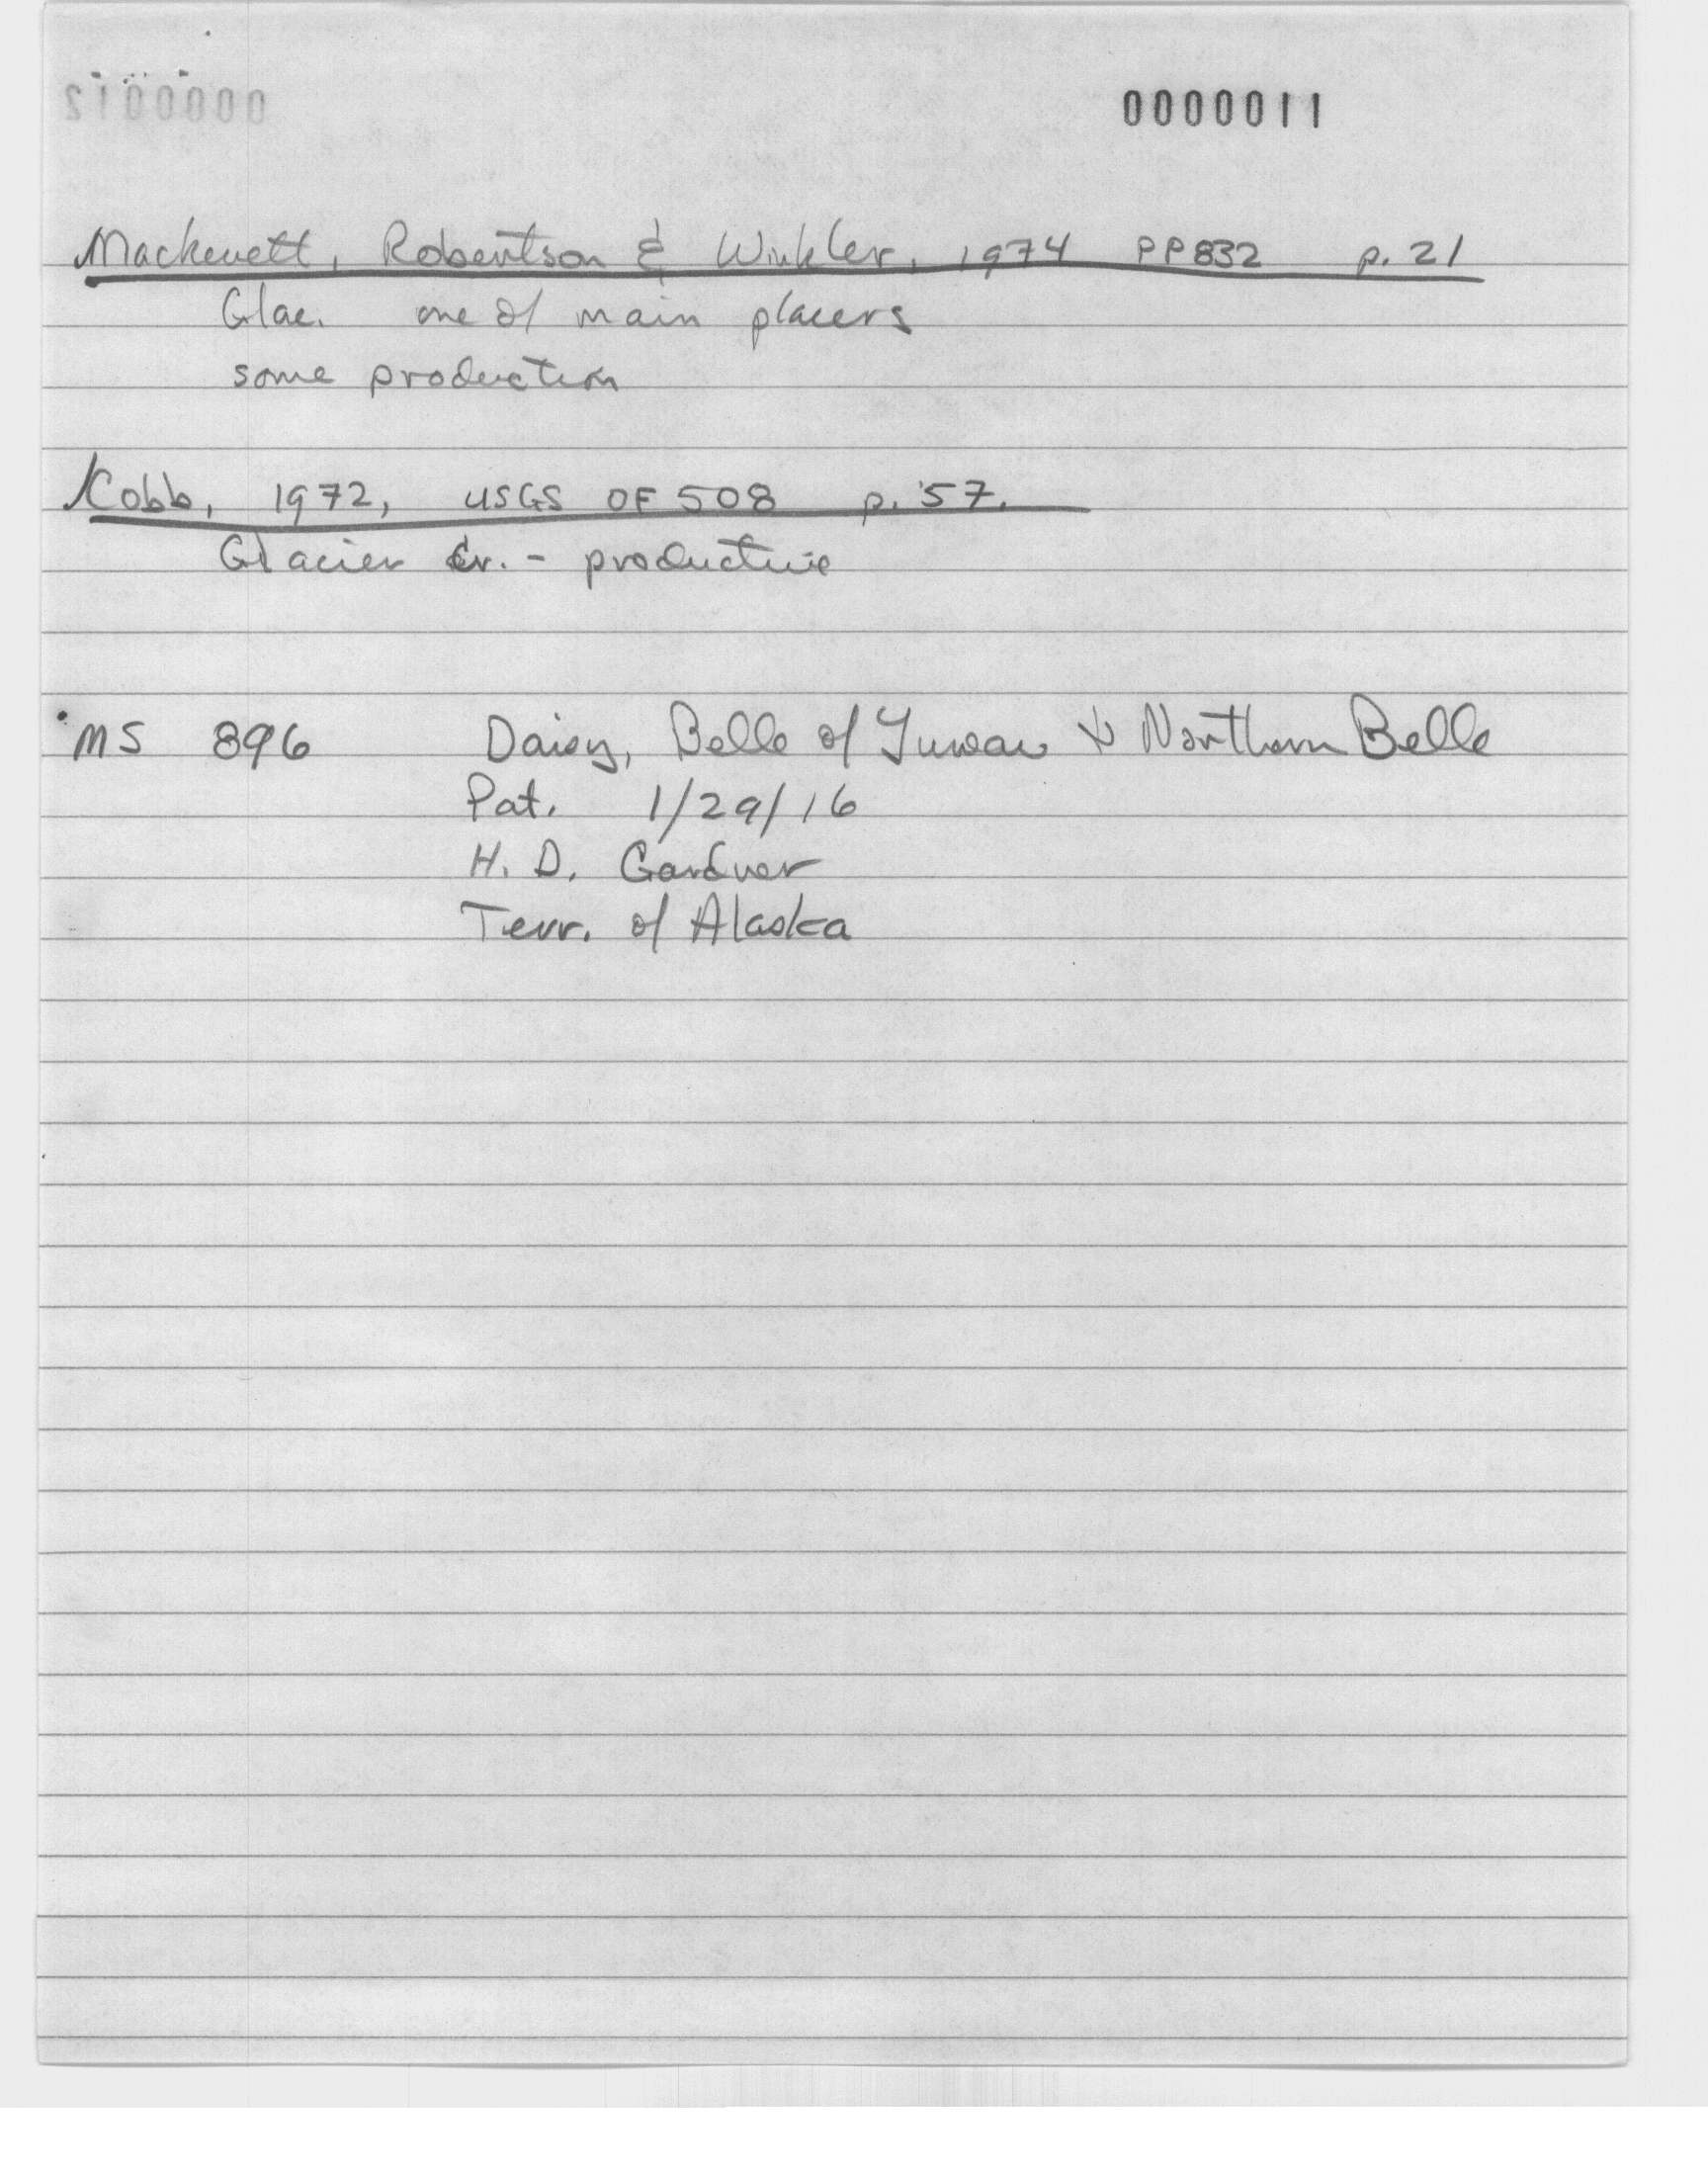 0000011
Mackevett, Robertson & Winkler, 1974 PP832 p. 21
Glac. one of main placers
some production
Kobb, 1972, USGS OF 508 p. 57.
Glacier Cr. - productive
MS 896 Daisy, Belle of & Northern Belle
Pat. 1/29/16
H. D. Gardner
Terr. of Alaska